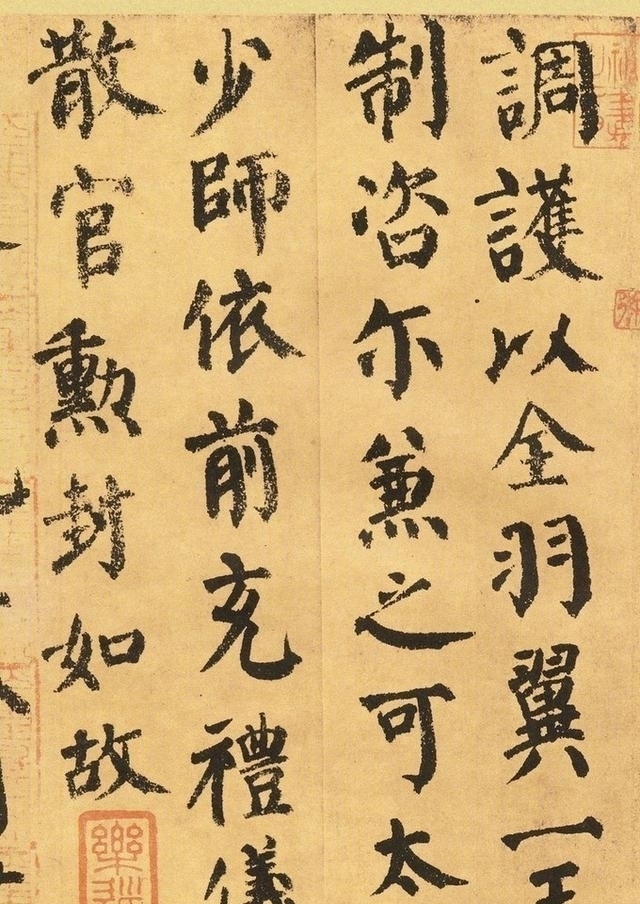 調護以全羽翼一王
制咨尔兼之可太
少師依前充禮儀
散官勳封如故